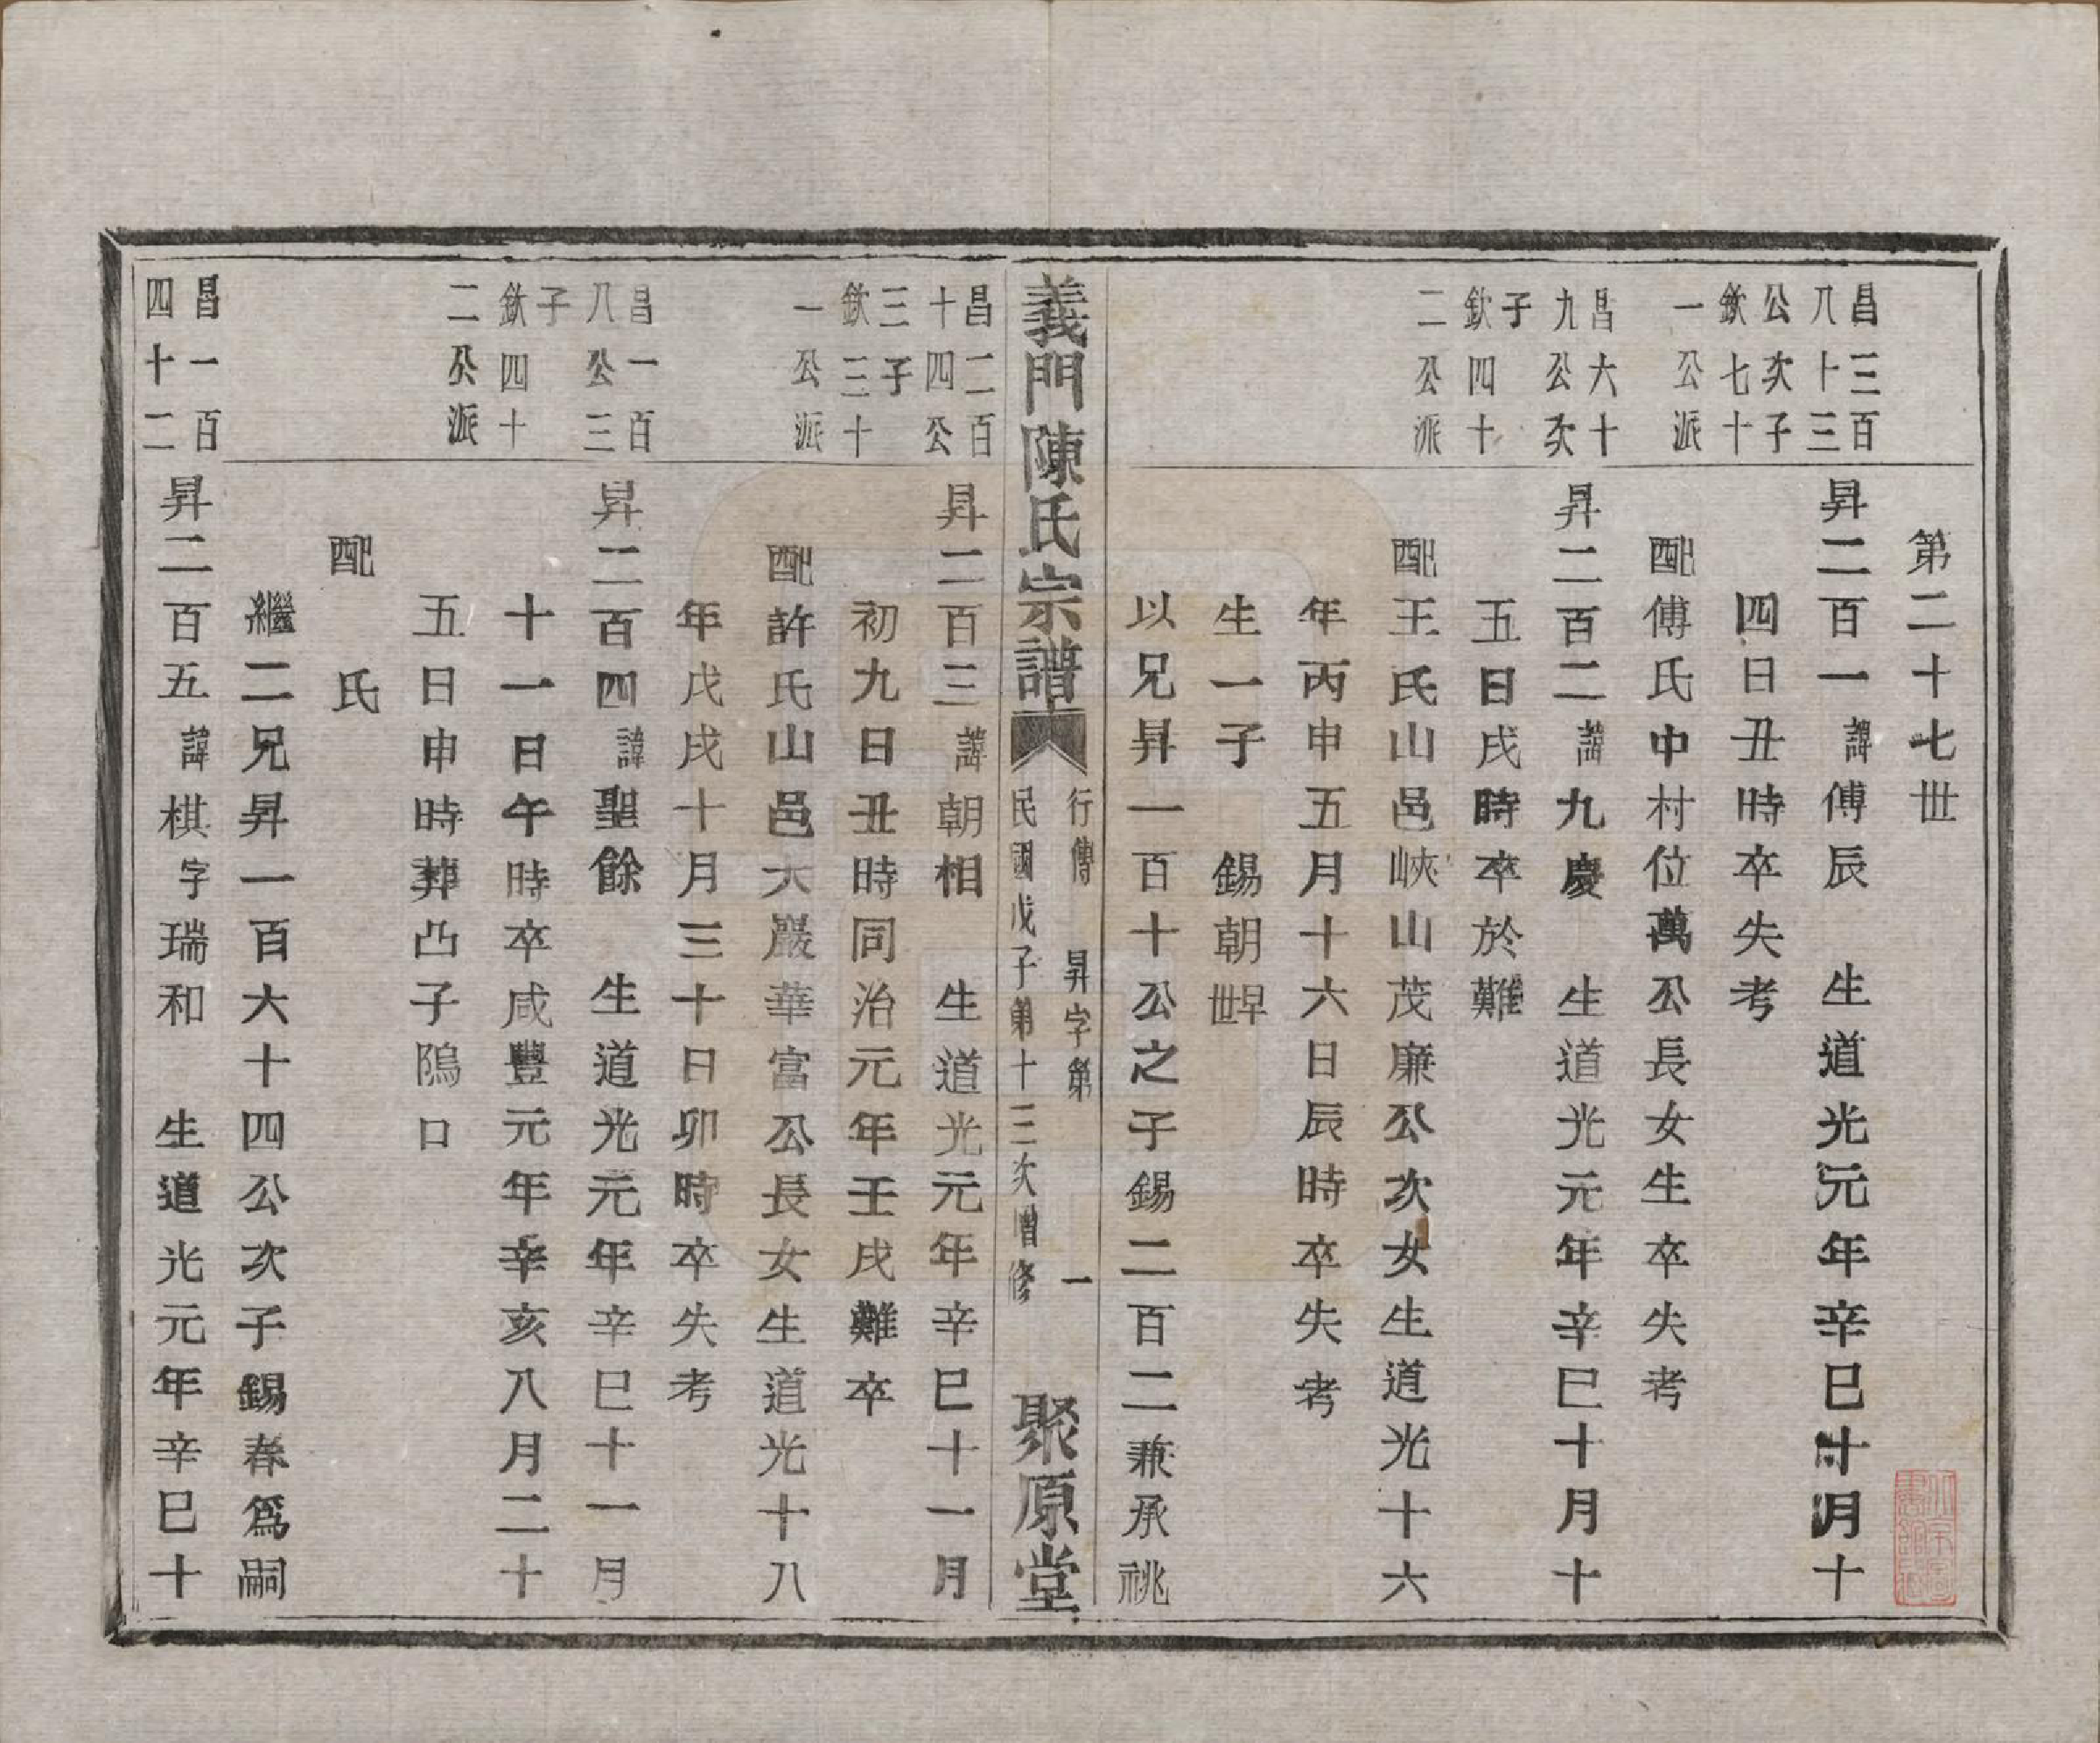 第二十七世
昌三百
八十三
公次子
欽七十
一公派
昇二百一諱傅辰　生道光元年辛巳十月十
四日丑時卒失考
配傅氏中村位萬公長女生卒失考
昌六十
九公次
子
欽四十
二公派
昇二百二諱九慶　生道光元年辛巳十月十
五日戌時卒於難
配王氏山邑峽山茂廉公次女生道光十六
年丙申五月十六日辰時卒失考
生一子　錫朝世早
以兄昇一百十公之子錫二百二兼承祧
義門陳氏宗譜
行傳　昇字第　一
民國戊子第十三次增修
聚原堂
昌二百
十四公
三子
欽三十
一公派
昇二百三諱朝相　生道光元年辛巳十一月
初九日丑時同治元年壬戌難卒
配許氏山邑大嚴華富公長女生道光十八
年戊戌十月三十日卯時卒失考
昌一百
八公三
子
欽四十
二公派
昇二百四諱聖餘　生道光元年辛巳十一月
十一日午時卒咸豐元年辛亥八月二十
五日申時葬凸子隖口
配　氏
繼二兄昇一百六十四公次子錫春爲嗣
昌一百
四十二
昇二百五諱棋字瑞和　生道光元年辛巳十